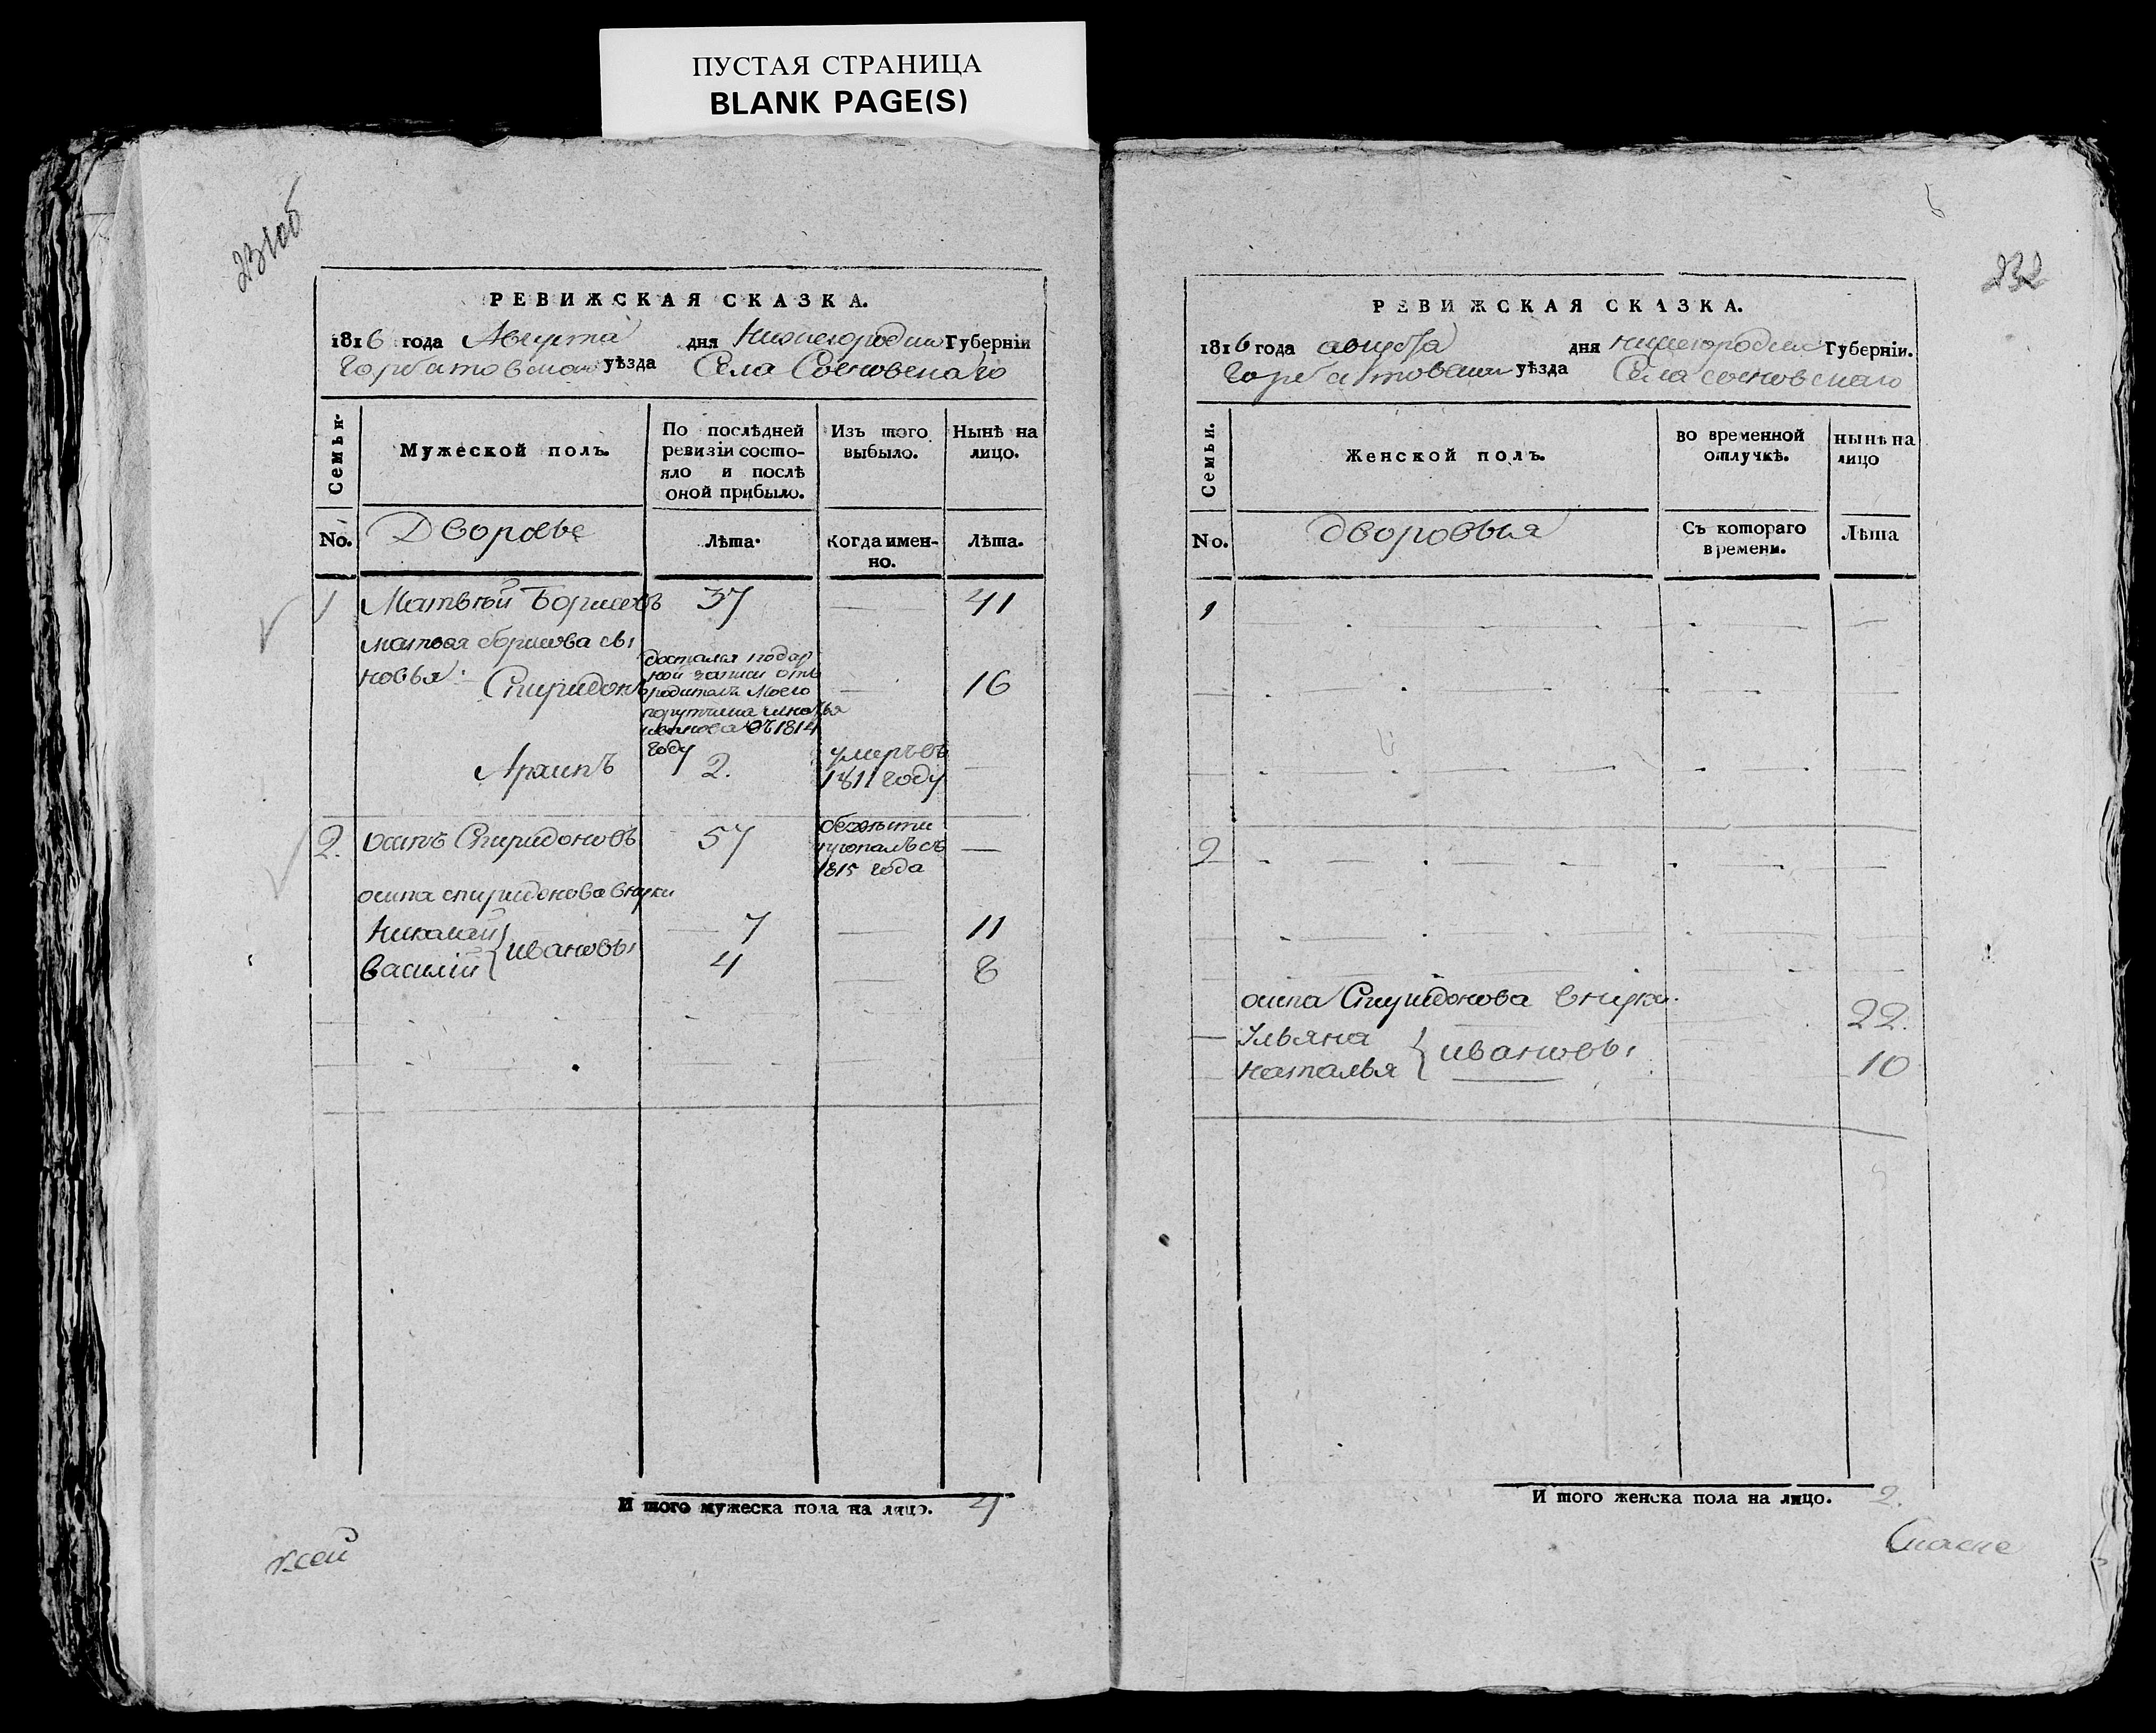 ПУСТАЯ СТРАНИЦА
BLANK PAGE(S)
231об
РЕВИЖСКАЯ СКАЗКА.
1816 года Августа дня Нижегородской Губерніи
Горбатовской уѣзда Села Сосновскаго
Семьи.
Мужеской полъ.
По послѣдней ревизіи состояло и послѣ оной прибыло.
Изъ того выбыло.
Нынѣ на лицо.
No.
Дворовые
Лѣта.
Когда именно.
Лѣта.
1 Матвѣй Борисовъ 37 — 41
матвея борисова сы
новья: Спиридонъ
достался по дар
ной записи отъ
родителя моего
порутчика
иванова въ 1814
году
— 16
Архипъ 2. умеръ въ
1811 году —
2. осипъ Спиридоновъ 57
безвѣсти
пропалъ съ
1815 года
—
осипа спиридонова внуки
Николай 7 — 11
Василій } ивановы 4 — 8
И того мужеска пола на лицо. 4
232
РЕВИЖСКАЯ СКАЗКА.
1816 года августа дня нижегородской Губерніи.
горбатовской уѣзда Села сосновскаго
Семьи.
Женской полъ.
во временной отлучкѣ.
нынѣ на лицо
No.
дворовыя
Съ котораго времени.
Лѣта
1
2
осипа Спиридонова внуки.
Ульяна 22.
наталья { ивановы 10
И того женска пола на лицо. 2.